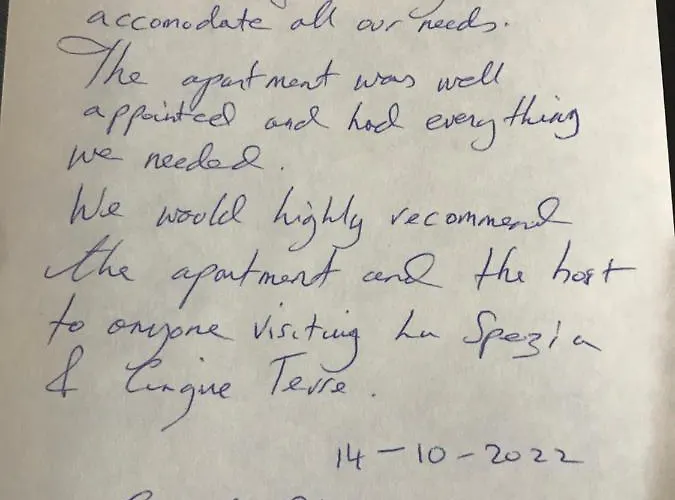 accomodate all our needs.
The apartment was well
appointed and had everything
we needed.
We would highly recommend
the apartment and the host
to anyone visiting La Spezia
& Cinque Terre.
14-10-2022